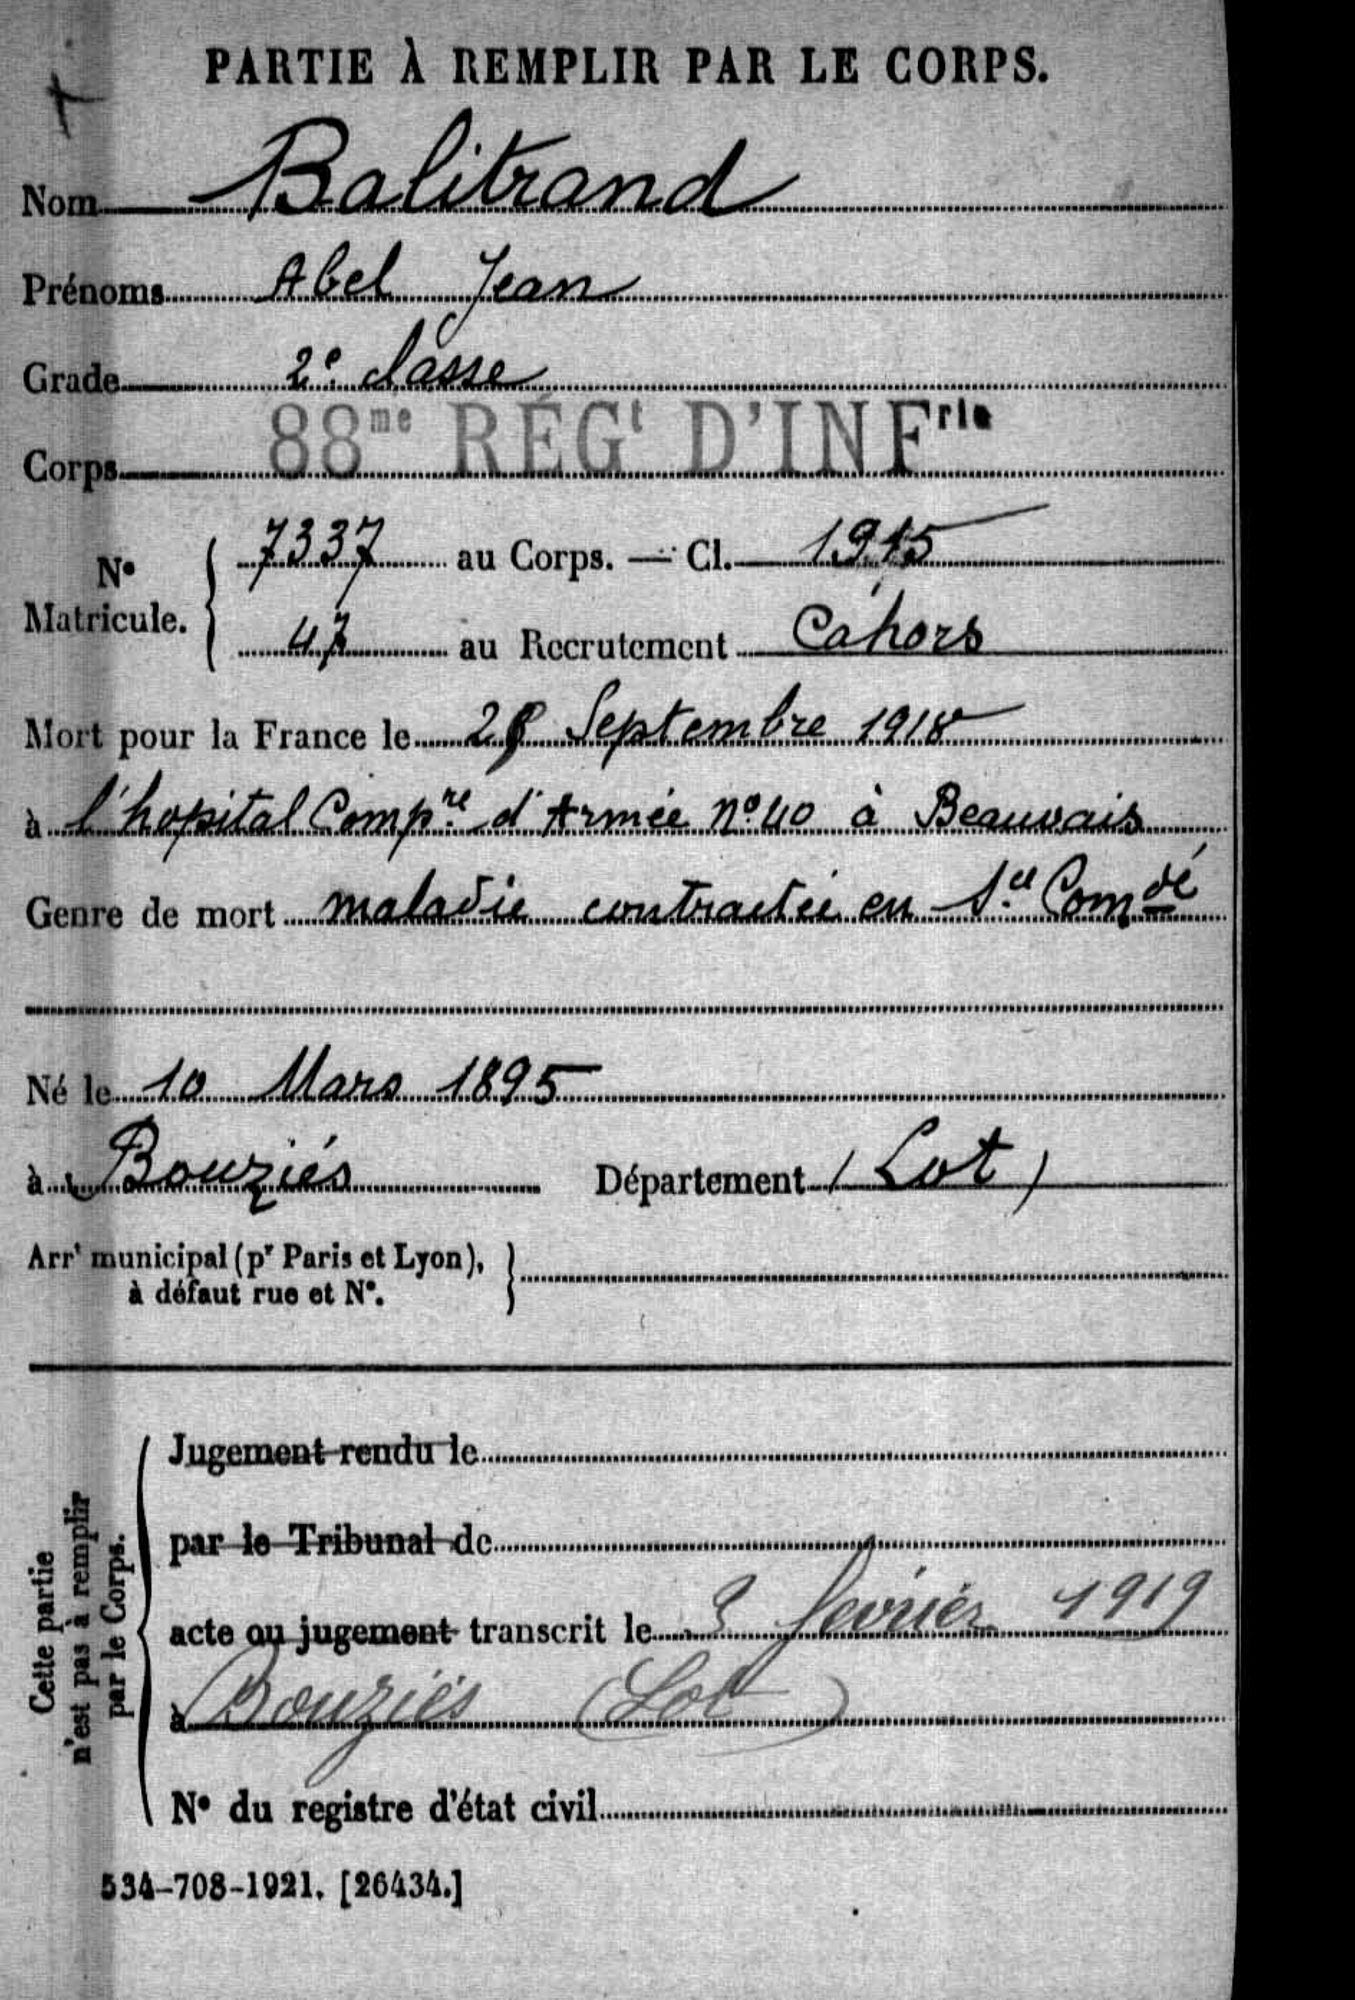 PARTIE À REMPLIR PAR LE CORPS.
Nom Balitrand
Prénoms Abel Jean
Grade 2e classe
Corps 88me RÉGt D'INFrie
No Matricule. 7337 au Corps. — Cl. 1915
47 au Recrutement Cahors
Mort pour la France le Septembre 1918
à l'hopital Compre d'Armée no 40 à Beauvais
Genre de mort maladie contractée en Sce Comdé
Né le 10 Mars 1895
à Bouziés Département (Lot)
Arrt municipal (pr Paris et Lyon),
à défaut rue et No.
Cette partie
n'est pas à remplir
par le Corps.
Jugement rendu le
par le Tribunal de
acte ou jugement transcrit le 3 fevrier 1919
à Bouziés (Lot)
No du registre d'état civil
534-708-1921. [26434.]